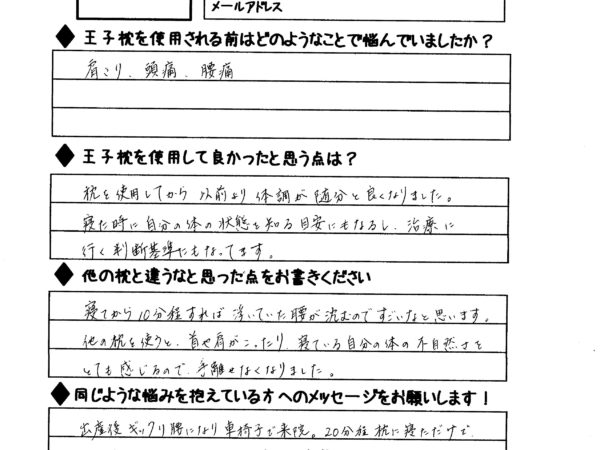 メールアドレス
◆王子枕を使用される前はどのようなことで悩んでいましたか？
肩こり、頭痛、腰痛
◆王子枕を使用して良かったと思う点は？
枕を使用してから以前より体調が随分と良くなりました。
寝た時に自分の体の状態を知る目安にもなるし、治療に
行く判断基準にもなってます。
◆他の枕と違うなと思った点をお書きください
寝てから10分程すれば浮いていた腰が沈むのですごいなと思います。
他の枕を使うと、首や肩がこったり、寝ている自分の体の不自然さを
とても感じるので、手離せなくなりました。
◆同じような悩みを抱えている方へのメッセージをお願いします！
出産後ギックリ腰になり車椅子で来院。20分程枕に寝ただけで